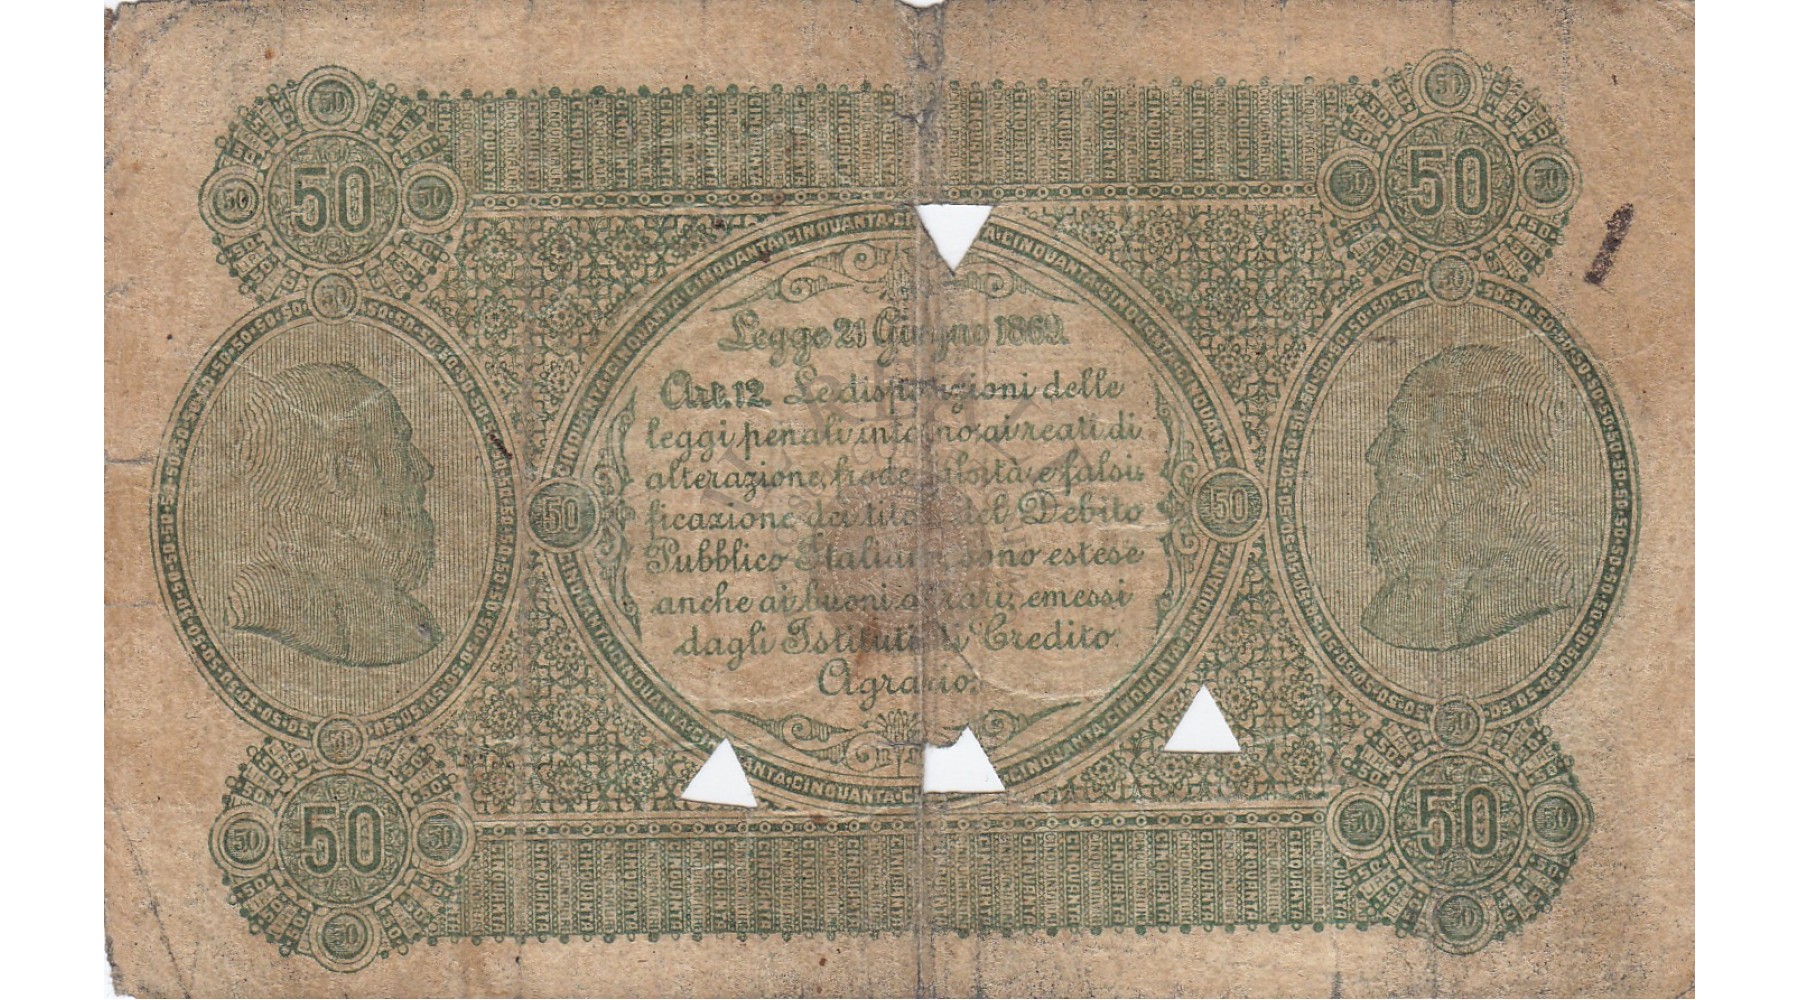 50 50
50 50 50 50
50 50
CINQUANTA·CINQUANTA·CINQUANTA
Legge 21 Giugno 1869.
Art. 12. Le disposizioni delle
leggi penali intorno ai reati di
alterazione, frode e falsi-
ficazione dei titoli del Debito
Pubblico Italiano, sono estese
anche ai buoni agrari, emessi
dagli Istituti di Credito
Agrario.
50 50
50 50
50 50 50 50
50 50